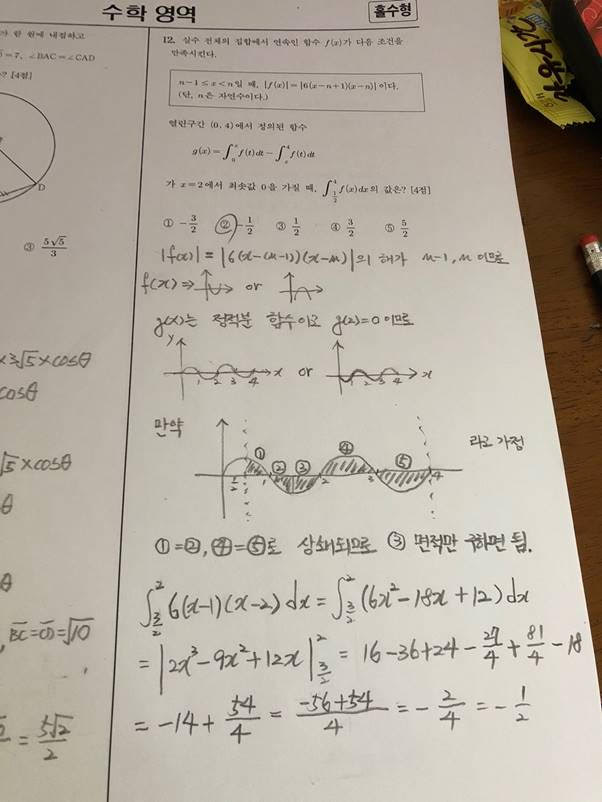 수학 영역
홀수형
가 한 원에 내접하고
=7, ∠BAC=∠CAD
? [4점]
D
③ 5√5/3
×3√5×cosθ
cosθ
√5×cosθ
θ
θ
BC=CD=√10
=5√2/2
12. 실수 전체의 집합에서 연속인 함수 f(x)가 다음 조건을
만족시킨다.
n-1≤x<n일 때, |f(x)|=|6(x-n+1)(x-n)|이다.
(단, n은 자연수이다.)
열린구간 (0, 4)에서 정의된 함수
g(x)=∫₀ˣ f(t)dt-∫ₓ⁴ f(t)dt
가 x=2에서 최솟값 0을 가질 때, ∫_{1/2}^{4} f(x)dx의 값은? [4점]
① -3/2 ② -1/2 ③ 1/2 ④ 3/2 ⑤ 5/2
|f(x)|=|6(x-(n-1))(x-n)|의 해가 n-1, n 이므로
f(x)⇒ or
g(x)는 정적분 함수이고 g(2)=0이므로
y
1 2 3 4 x or 1 2 3 4 x
만약 ① ② ③ ④ ⑤ 라고 가정
1/2 1 2 3 4
①=②, ④=⑤로 상쇄되므로 ③ 면적만 구하면 됨.
∫_{3/2}^{2} 6(x-1)(x-2)dx=∫_{3/2}^{2} (6x²-18x+12)dx
=|2x³-9x²+12x|_{3/2}^{2} = 16-36+24-27/4+81/4-18
=-14+54/4=(-56+54)/4=-2/4=-1/2